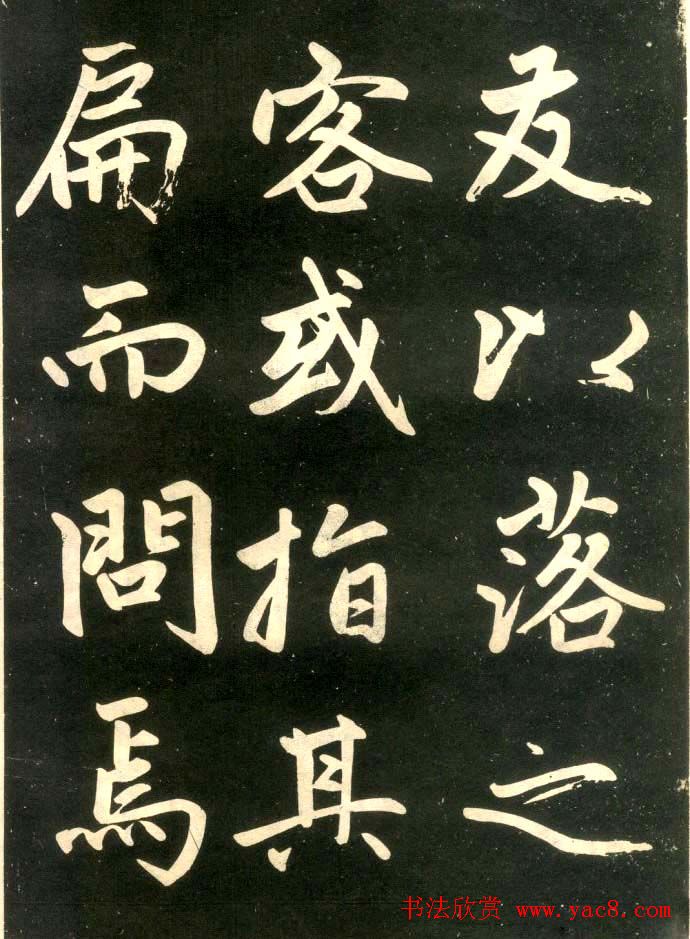 友以落之
客或指其
扁而問焉
书法欣赏 www.yac8.com